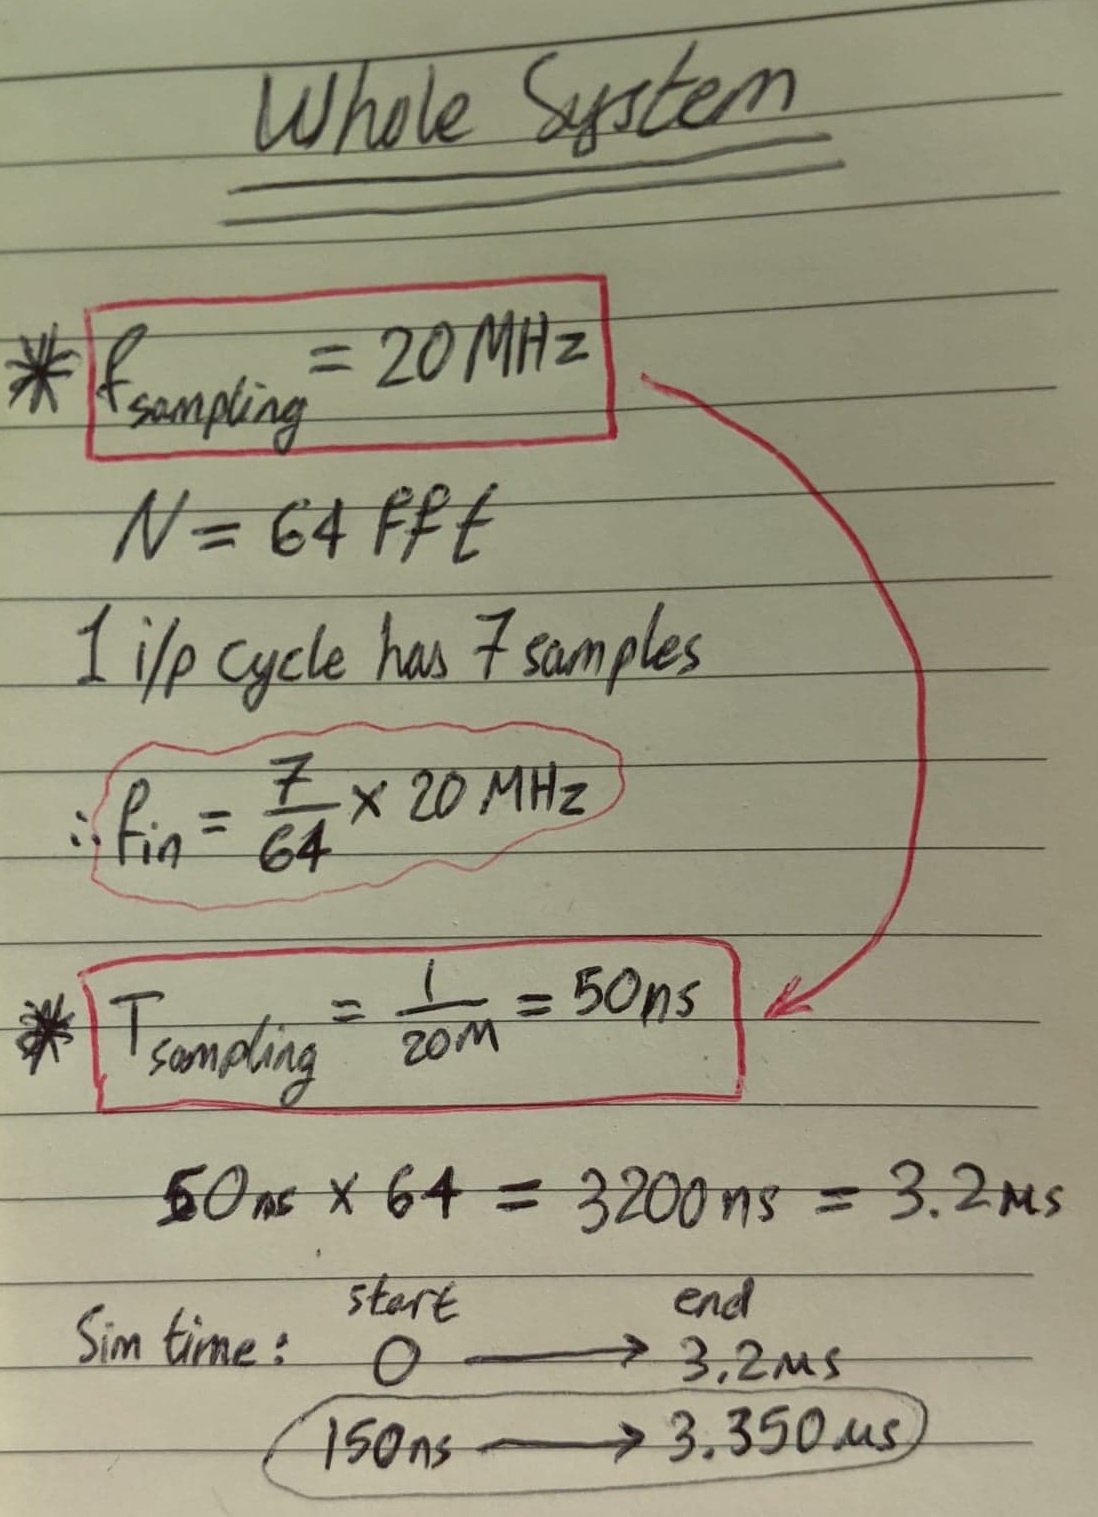 Whole System
* f sampling = 20 MHz
N = 64 fft
1 i/p cycle has 7 samples
∴ fin = 7/64 × 20 MHz
* T sampling = 1/20M = 50ns
50ns × 64 = 3200ns = 3.2 μs
start end
Sim time: 0 → 3.2 μs
150ns → 3.350 μs